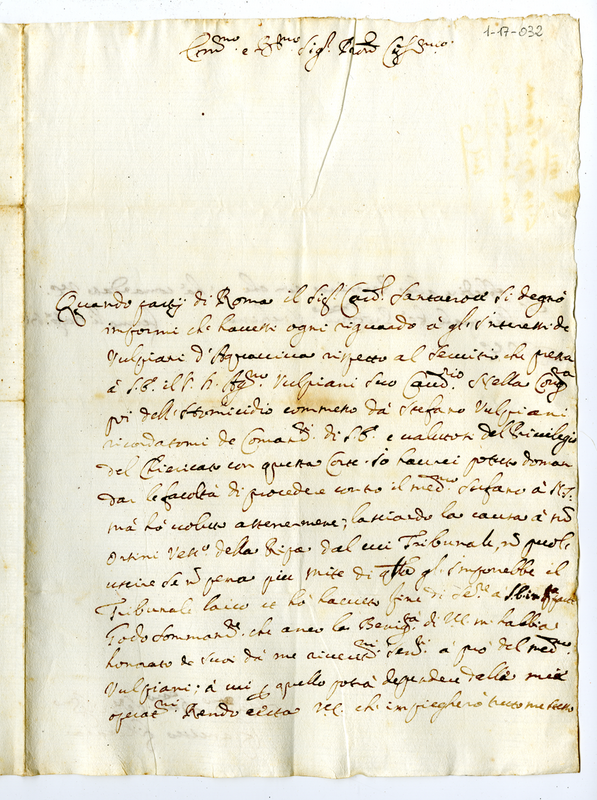 1-17-032
e Sig.
Quando partij di Roma il Sig. Card. Santacroce si degnò
informi che havessi ogni riguardo à gl'Interessi de
Vulpiani d'Aquaviva rispetto al servitio che presta
à S.E. il S. Vulpiani suo Caud.rio Nella
poi dell'Homicidio commesso dà Stefano Vulpiani
ricordatomi de Comand.ti di S.E. e valutosi del Privilegio
del Chiericato con questa Corte. Io haverei potuto doman
dar le facoltà di procedere contro il med.mo Stefano à N.S.
mà hò voluto astenermene, lasciando la causa à
Orsini Vesc.o della Ripa dal cui Tribunale, puol
uscire se pena più mite di gl'Imporrebbe il
Tribunale laico et hò havuto
Godo sommam.te che anco la Benig.tà di VE m'habbia
honorato de suoi dà me à prò del med.mo
Vulpiani, à cui quello potrà dependere dalle mie
operat.ni Rendo certa VE. che impiegherò tutto me stesso